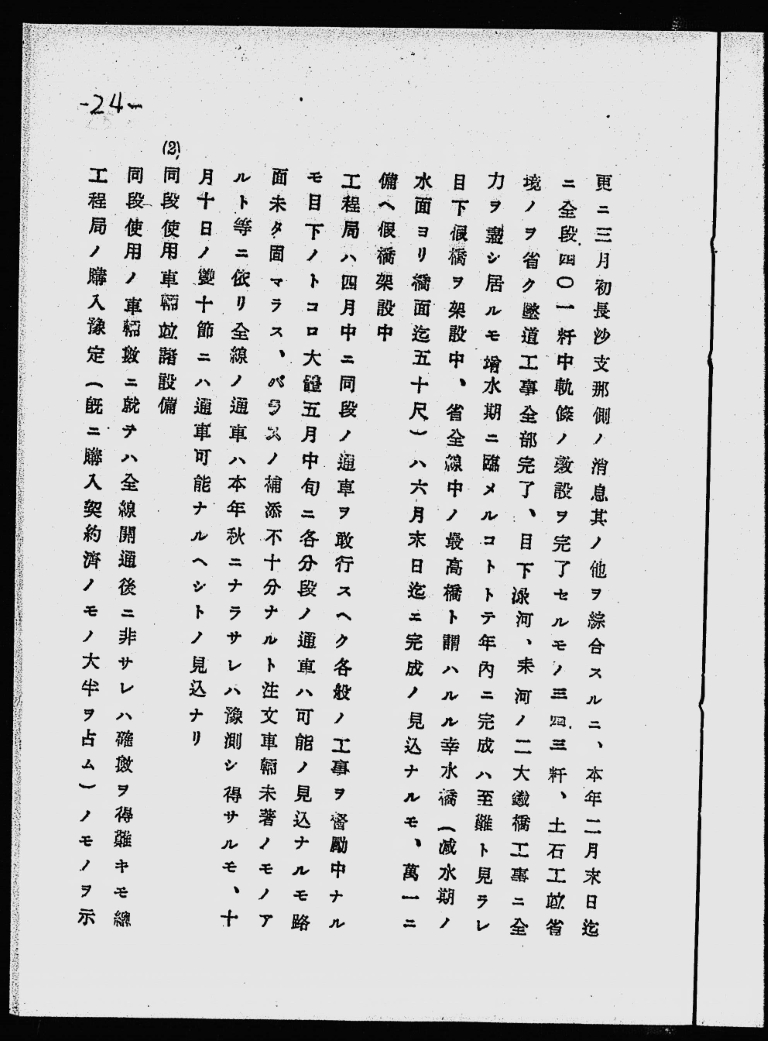 -24-
更ニ三月初長沙支那側ノ消息其ノ他ヲ綜合スルニ、本年二月末日迄
ニ全段四〇一粁中軌條ノ敷設ヲ完了セルモノ三四三粁、土石工竝省
境ノヲ省ク隧道工事全部完了、目下淥河、耒河ノ二大鐵橋工事ニ全
力ヲ盡シ居ルモ增水期ニ臨メルコトトテ年內ニ完成ハ至難ト見ラレ
目下假橋ヲ架設中、省全線中ノ最高橋ト謂ハルル幸水橋（減水期ノ
水面ヨリ橋面迄五十尺）ハ六月末日迄ニ完成ノ見込ナルモ、萬一ニ
備ヘ假橋架設中
工程局ハ四月中ニ同段ノ通車ヲ敢行スヘク各般ノ工事ヲ督勵中ナル
モ目下ノトコロ大體五月中旬ニ各分段ノ通車ハ可能ノ見込ナルモ路
面未タ固マラス、バラスノ補添不十分ナルト注文車輛未著ノモノア
ルト等ニ依リ全線ノ通車ハ本年秋ニナラサレハ豫測シ得サルモ、十
月十日ノ雙十節ニハ通車可能ナルヘシトノ見込ナリ
(2)同段使用車輛竝諸設備
同段使用ノ車輛數ニ就テハ全線開通後ニ非サレハ確數ヲ得難キモ總
工程局ノ購入豫定（旣ニ購入契約濟ノモノ大半ヲ占ム）ノモノヲ示